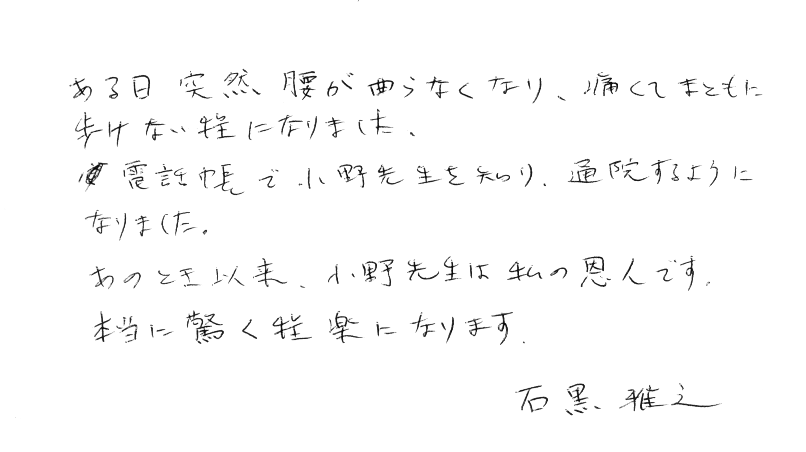 ある日突然、腰が曲らなくなり、痛くてまともに
歩けない程になりました、
電話帳で小野先生を知り、通院するように
なりました。
あのとき以来、小野先生は私の恩人です。
本当に驚く程楽になります。
石黒雅之